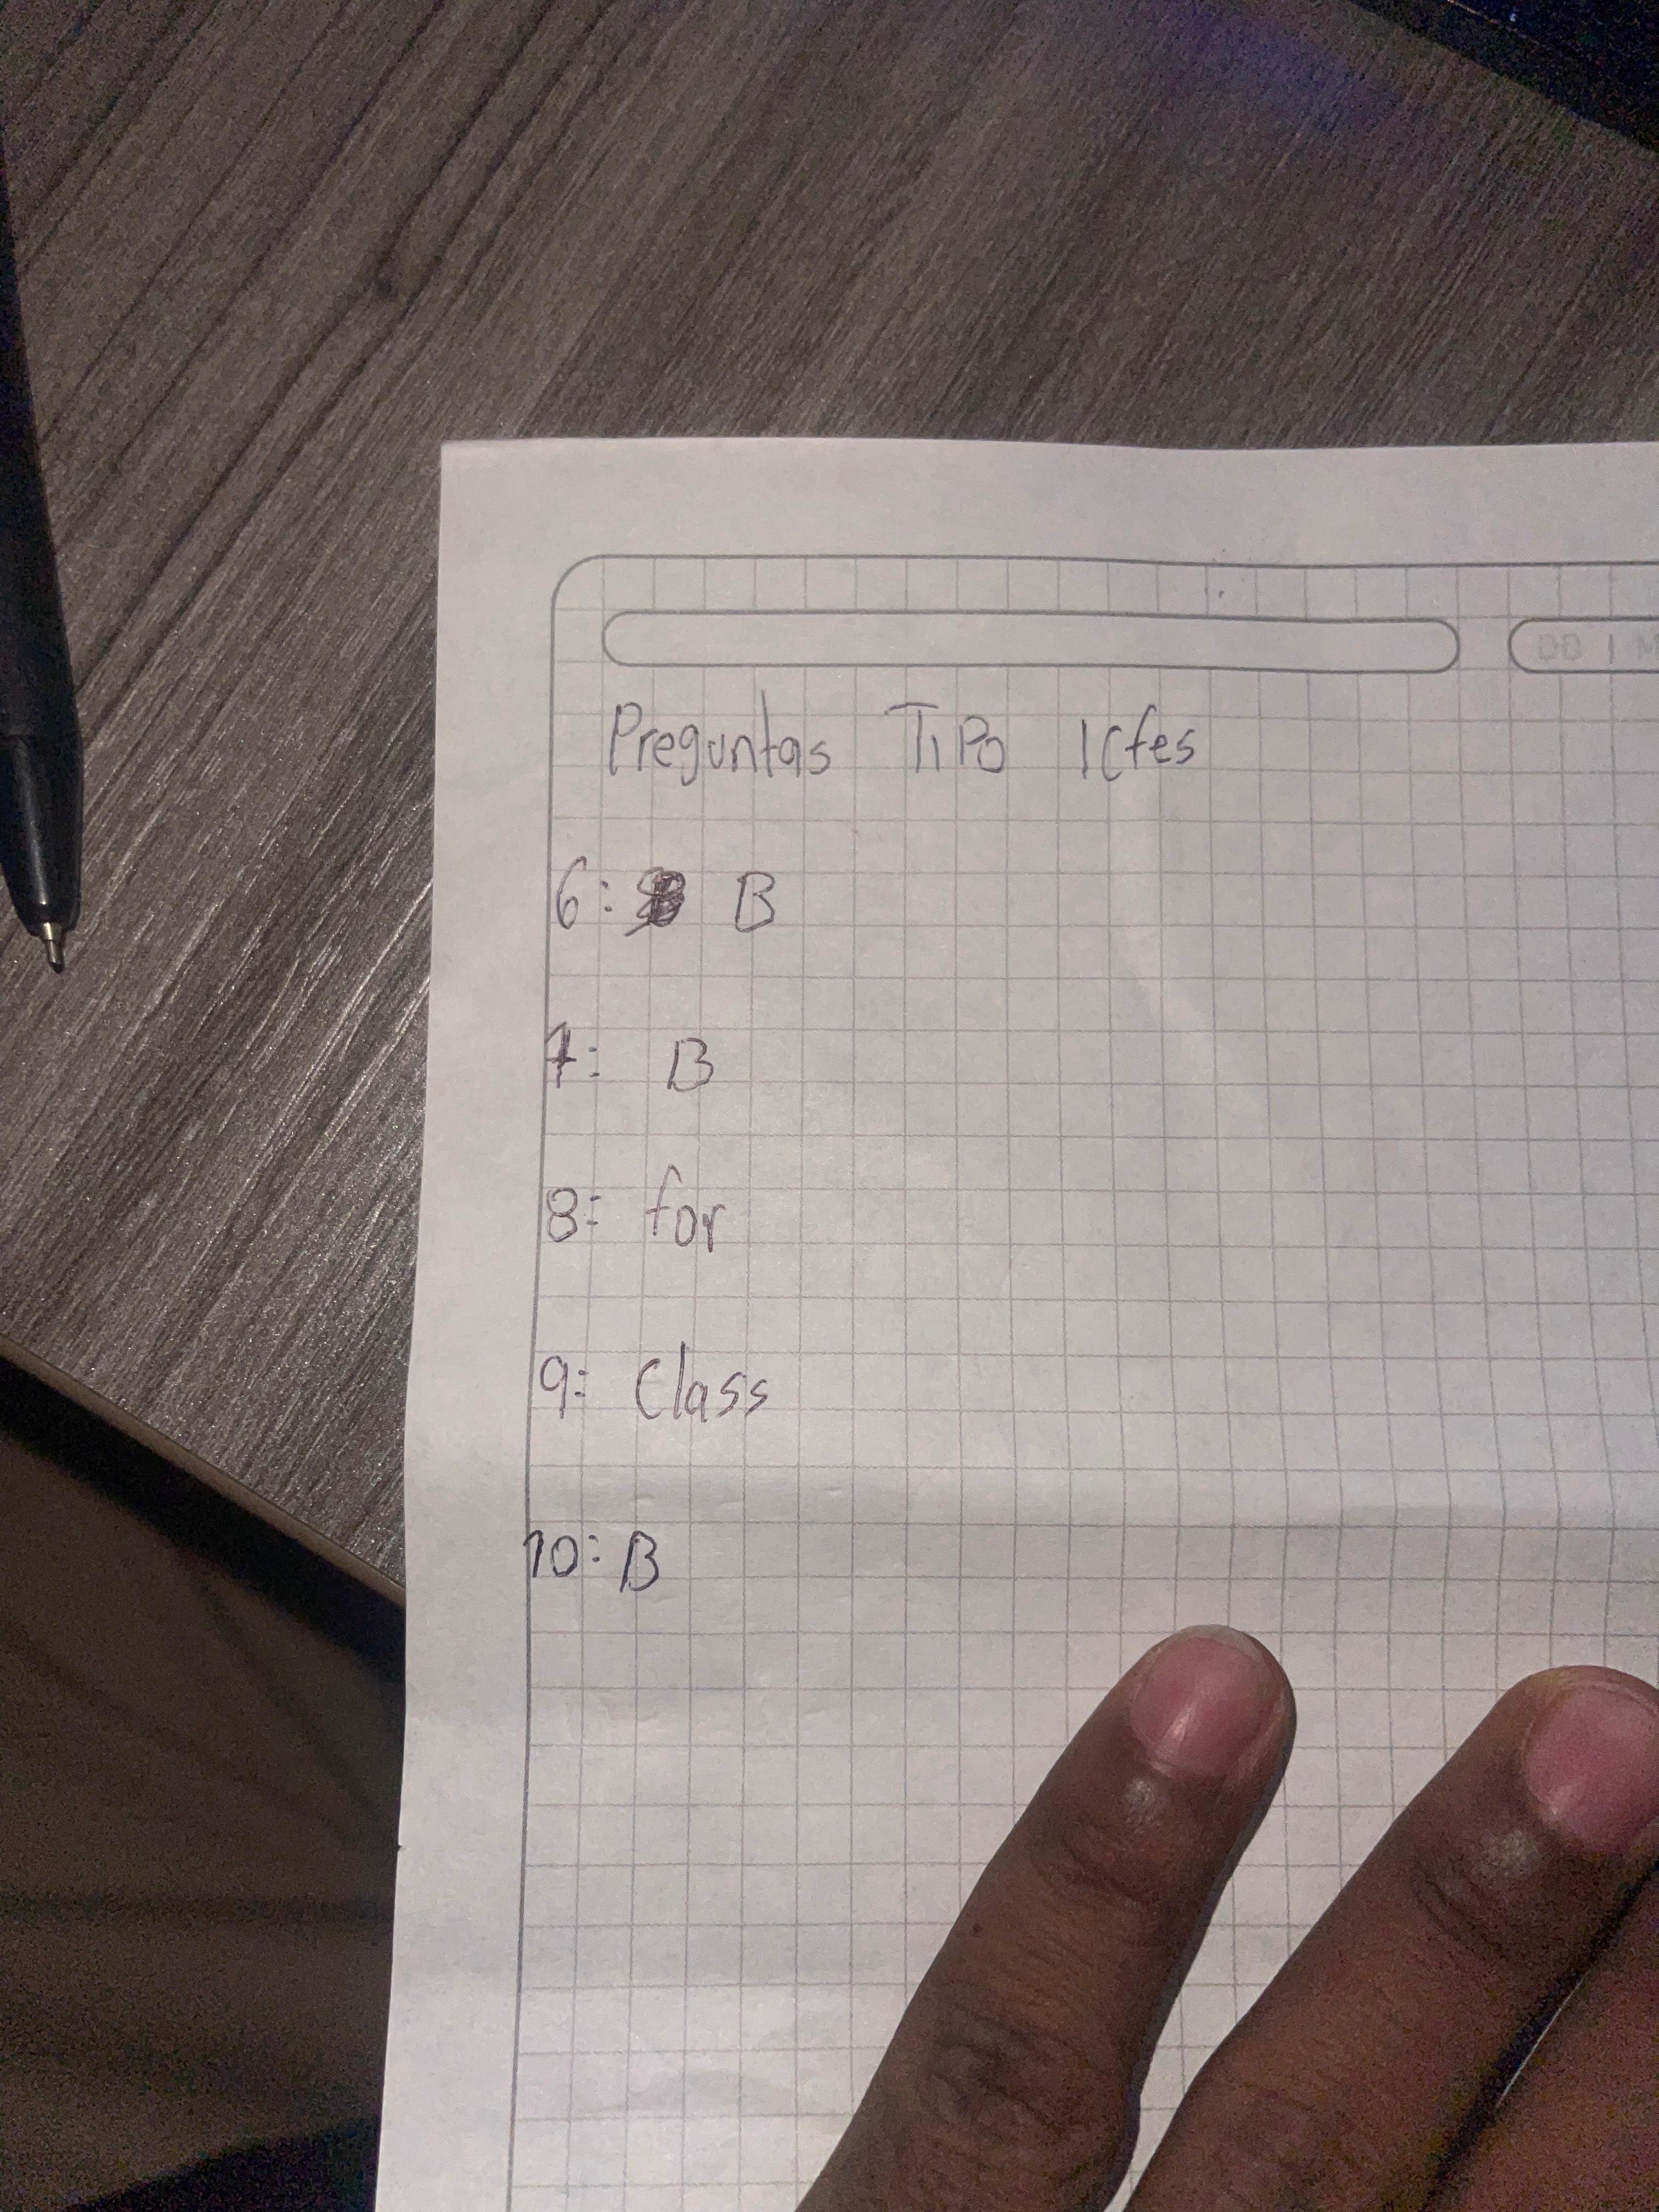 DD | M
Preguntas Tipo Icfes
6: B
7: B
8: for
9: Class
10: B